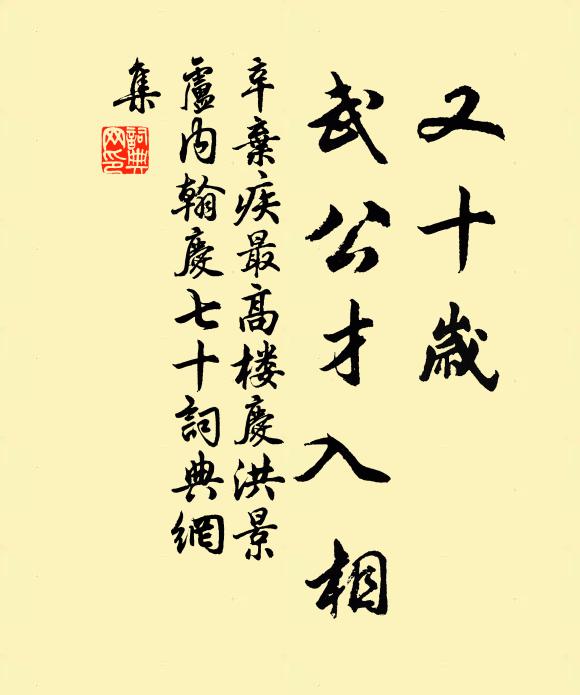 又十歲
武公才入相
辛棄疾最高楼慶洪景
盧内翰慶七十詞典網
集
詞典網印